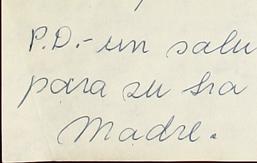 P.D.- un salu
para su sra
Madre.